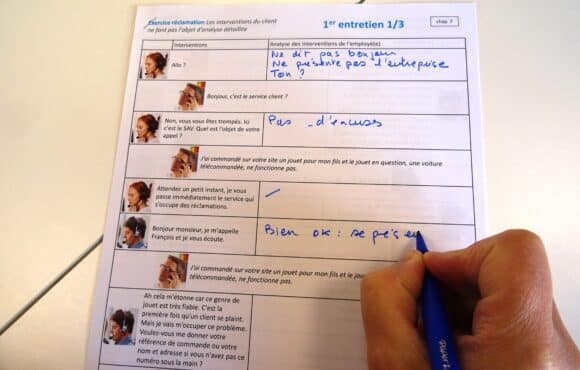 Exercice réclamation Les interventions du client
ne font pas l'objet d'analyse détaillée
1er entretien 1/3
chap. 7
Interventions
Analyse des interventions de l'employé(e)
Allo ?
Ne dit pas bonjour
Ne présente pas l'entreprise
Ton ?
Bonjour, c'est le service client ?
Non, vous vous êtes trompés. Ici
c'est le SAV. Quel est l'objet de votre
appel ?
Pas d'excuses
J'ai commandé sur votre site un jouet pour mon fils et le jouet en question, une voiture
télécommandée, ne fonctionne pas.
Attendez un petit instant, je vous
passe immédiatement le service qui
s'occupe des réclamations.
Bonjour monsieur, je m'appelle
François et je vous écoute.
Bien ok : se prés en
J'ai commandé sur votre site un jouet pour mon fils et le jouet
télécommandée, ne fonctionne pas.
Ah cela m'étonne car ce genre de
jouet est très fiable. C'est la
première fois qu'un client se plaint.
Mais je vais m'occuper ce problème.
Voulez-vous me donner votre
référence de commande ou votre
nom et adresse si vous n'avez pas ce
numéro sous la main ?